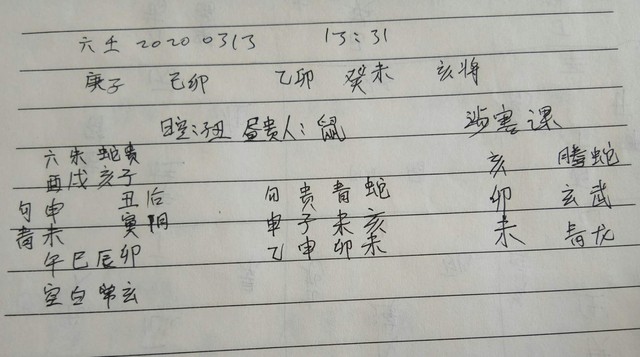 六壬 2020 0313 13:31
庚子 己卯 乙卯 癸未 亥将
日空:子丑 昼贵人:鼠 涉害课
六朱蛇贵 亥 腾蛇
酉戌亥子
勾申 丑后 勾贵青蛇 卯 玄武
青未 寅阴 申子未亥 未 青龙
午巳辰卯 乙申卯未
空白常玄